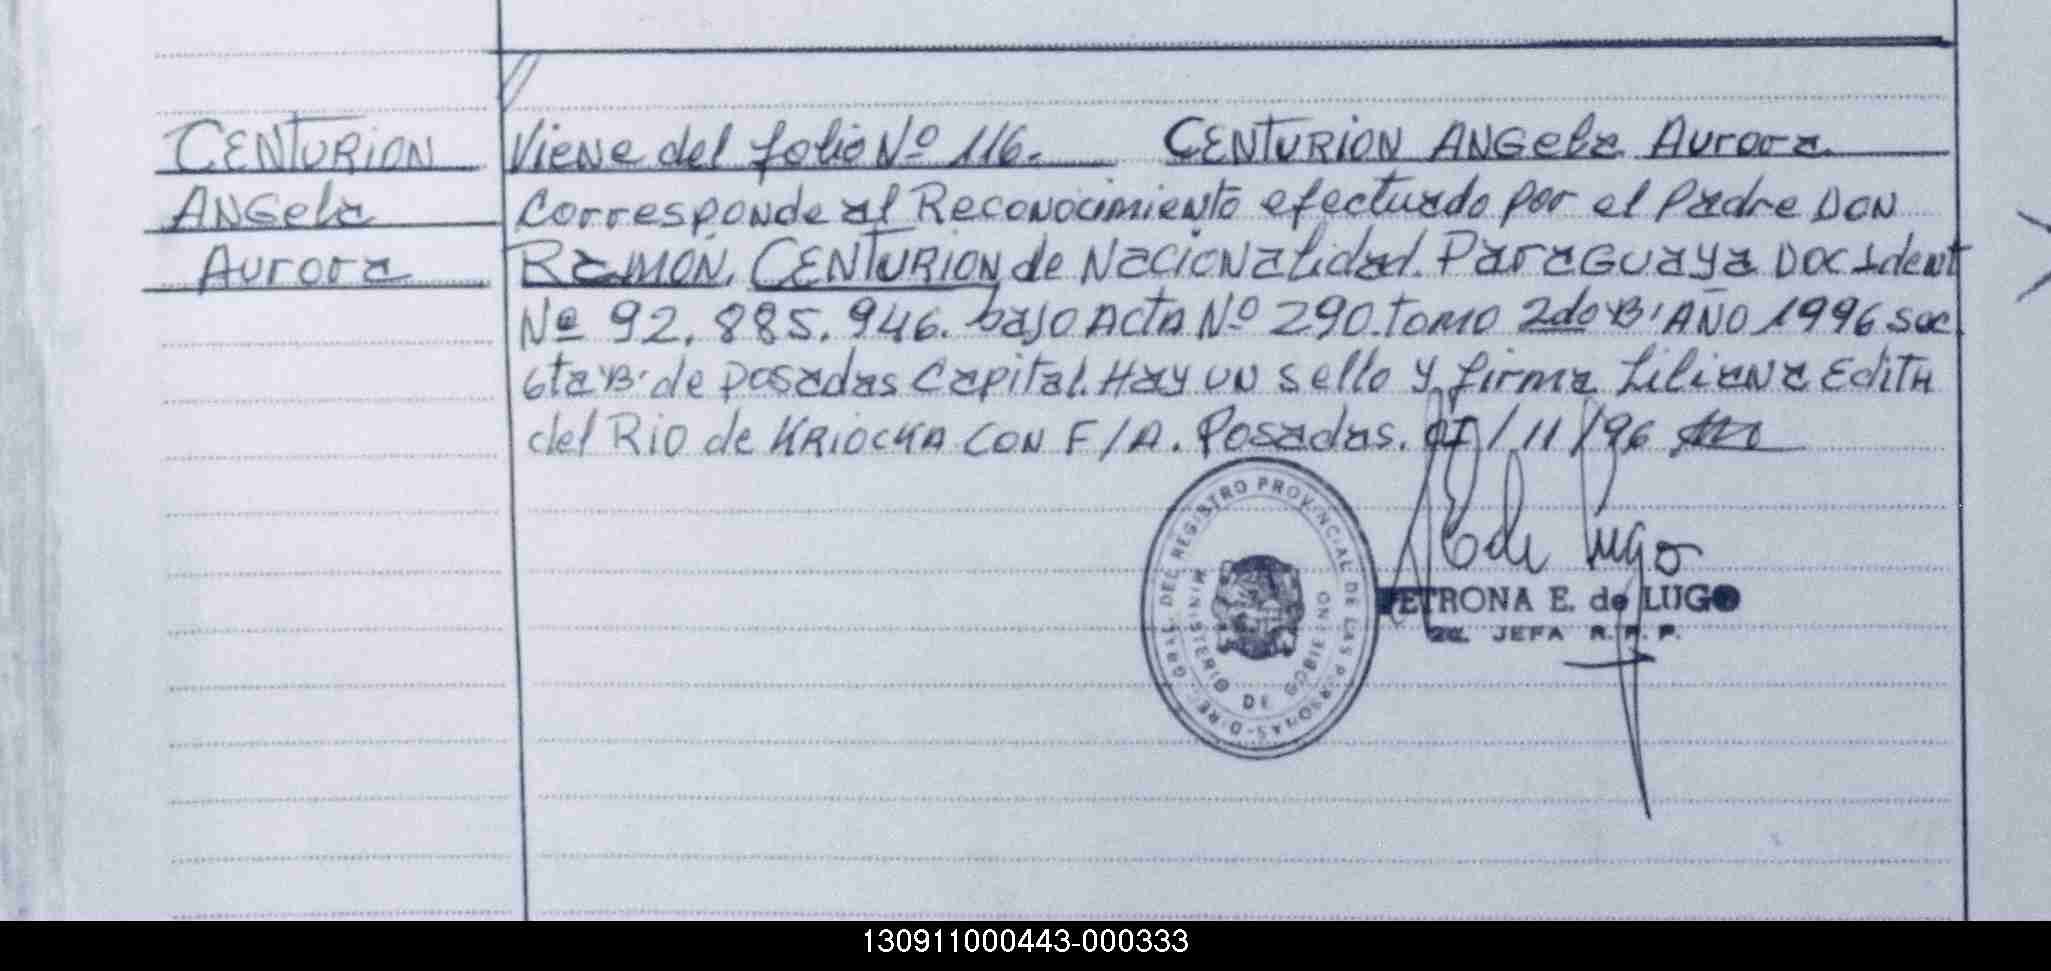 CENTURION
ANGela
Aurora
Viene del folio Nº 116. CENTURION ANGela Aurora
Corresponde al Reconocimiento efectuado por el Padre DON
RAMÓN, CENTURION de Nacionalidad. Paraguaya Doc Ident
Nº 92.885.946. bajo Acta Nº 290. tomo 2do "B" AÑO 1996 sec
6ta "B" de Posadas Capital. Hay un sello y firma Liliana Edith
del Rio de KRIOCKA CON F/A. Posadas. /11/96
DIREC. GRAL. DEL REGISTRO PROVINCIAL DE LAS PERSONAS
MINISTERIO DE GOBIERNO
E de Lugo
PETRONA E. de LUGO
2a. JEFA R. P. P.
130911000443-000333